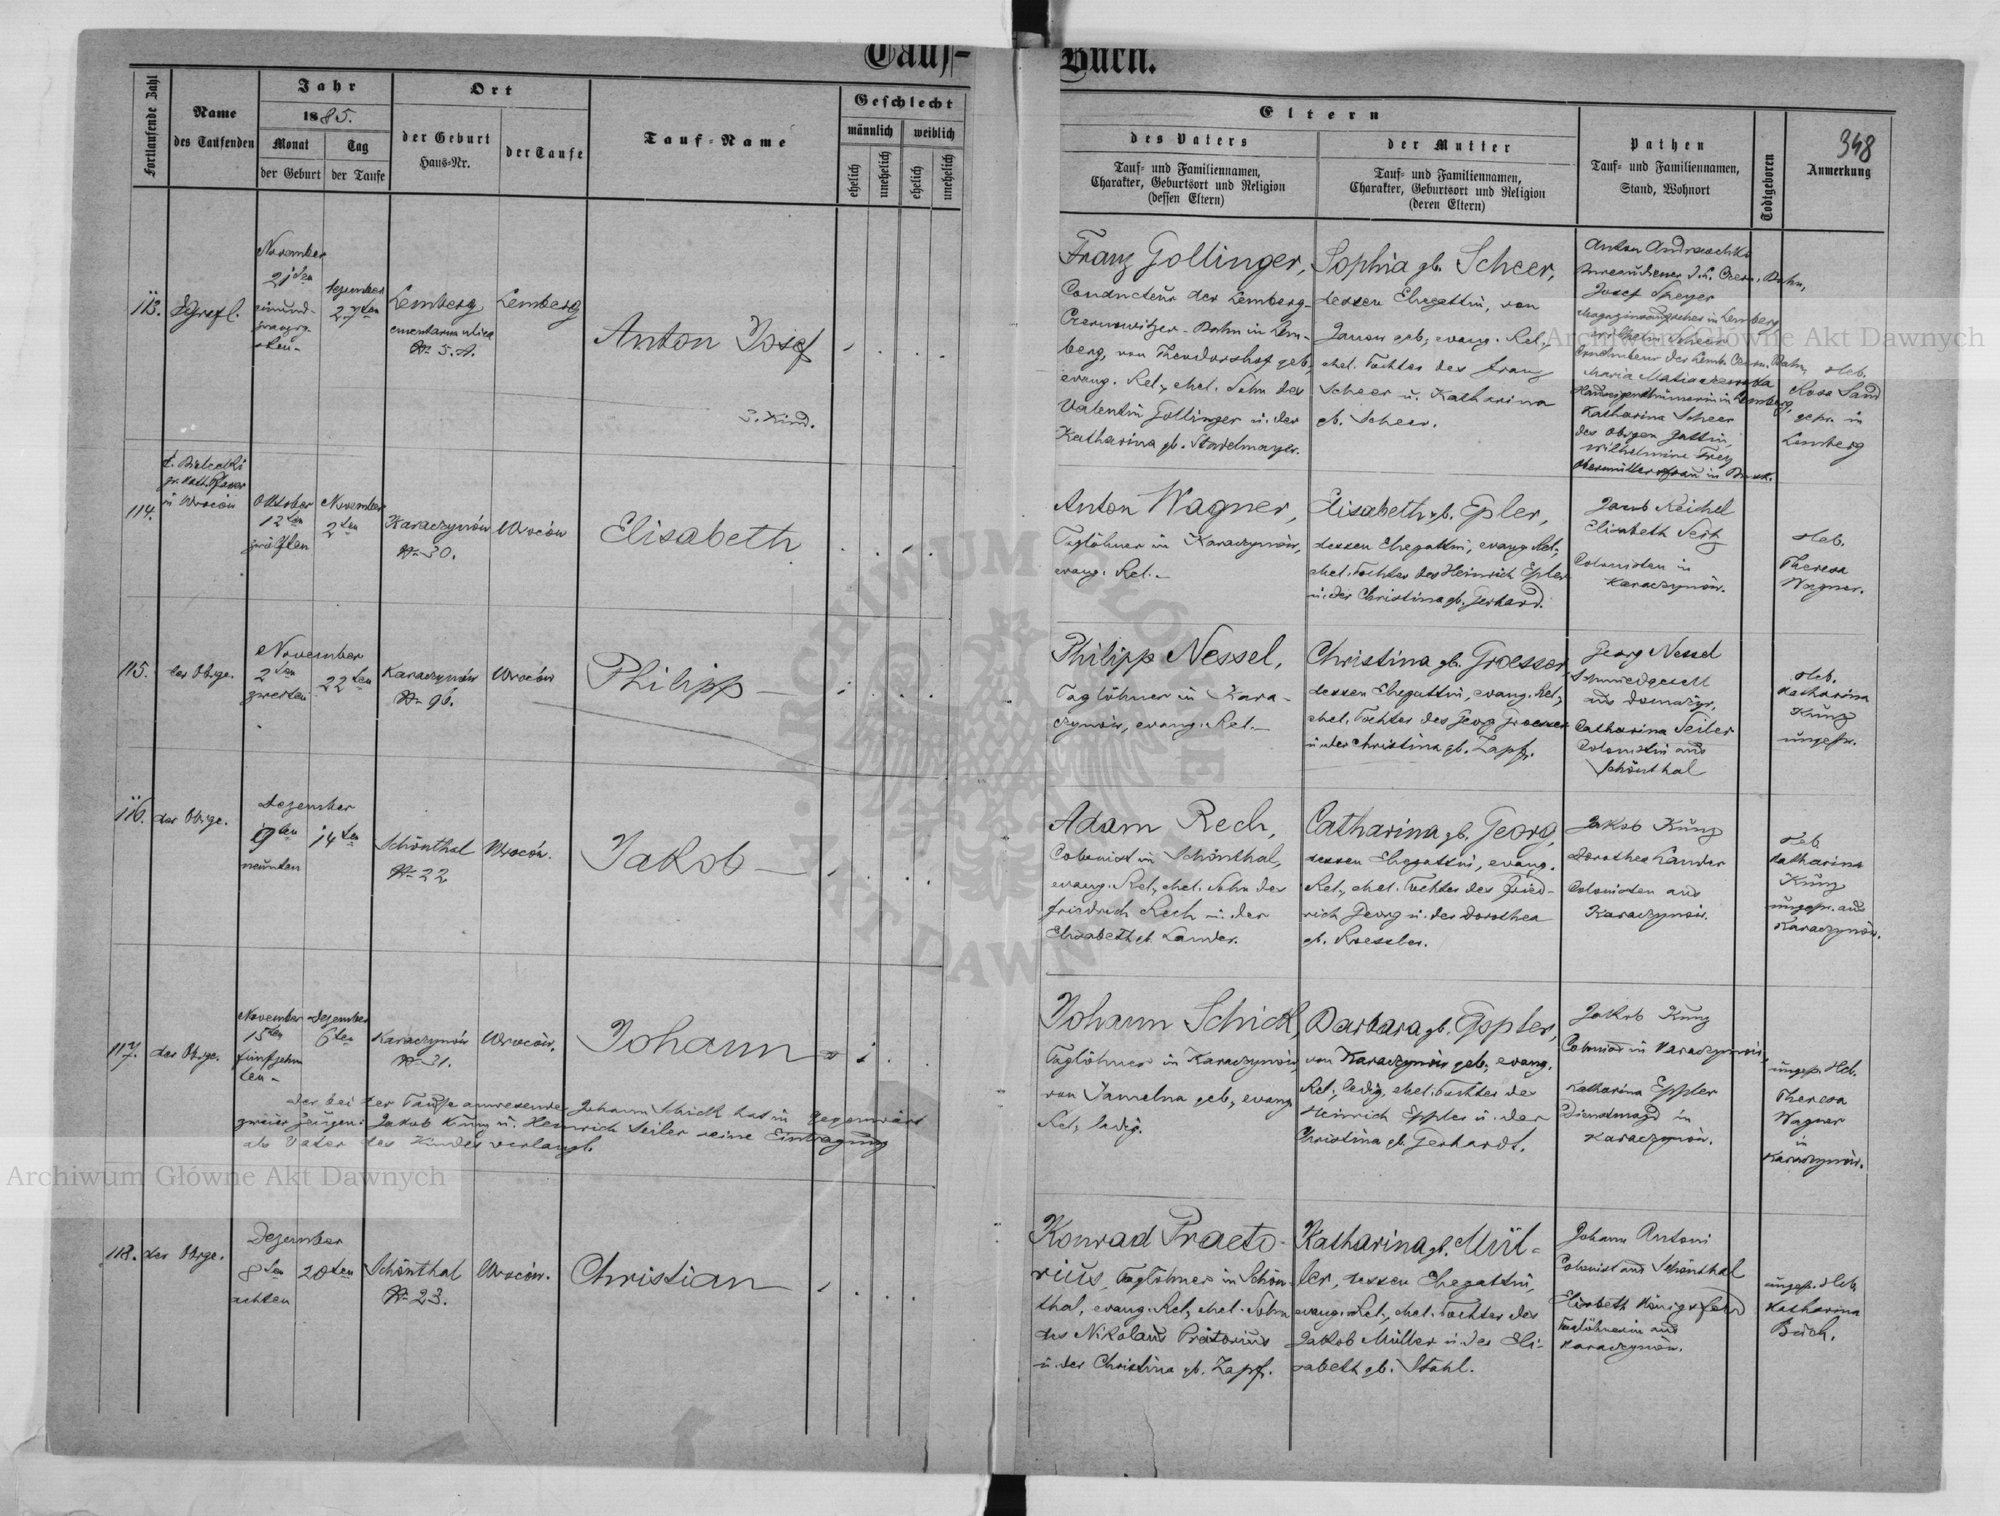 Tauf-
Buch.
348
Fortlaufende Zahl
Name
des Taufenden
Jahr
1885.
Monat
der Geburt
Tag
der Taufe
Ort
der Geburt
Haus-Nr.
der Taufe
Tauf-Name
Geschlecht
männlich
weiblich
ehelich
unehelich
ehelich
unehelich
Eltern
des Vaters
Tauf- und Familiennamen,
Charakter, Geburtsort und Religion
(dessen Eltern)
der Mutter
Tauf- und Familiennamen,
Charakter, Geburtsort und Religion
(deren Eltern)
Pathen
Tauf- und Familiennamen,
Stand, Wohnort
Todtgeboren
Anmerkung
113.
November
21ten
einund-
Dezember
27ten
Lemberg
Nr 5. A.
Lemberg
Anton Josef
3. Kind.
Franz Gollinger,
Conducteur der Lemberg-
Czernowitzer-Bahn in Lem-
berg, von Theodorshof geb.,
evang. Rel., ehel. Sohn des
Valentin Gollinger u. der
Katharina gb. Stadelmayer.
Sophia gb. Scheer,
dessen Ehegattin, von
Janow geb., evang. Rel.,
ehel. Tochter des Franz
Scheer u. Katharina
gb. Scheer.
Josef Speyer
Magazinsaufseher in Lemberg
Wilhelm Scheer
Conducteur der Lemb. Czern. Bahn,
Hauseigenthümerin in Lemberg,
Katharina Scheer
des Obigen Gattin,
Wilhelmine Frey
Heb.
Rosa Sand
gepr. in
Lemberg
114.
in Wrocow
Oktober
12ten
zwölften
November
2ten
Karaczynów
Nr 30.
Wroców
Elisabeth
Anton Wagner,
Taglöhner in Karaczynów,
evang. Rel.-
Elisabeth gb. Epler,
dessen Ehegattin, evang. Rel.,
ehel. Tochter des Heinrich Epler
u. der Christina gb. Gerhard.
Jacob Reichel
Elisabeth
Colonisten in
Karaczynów.
Heb.
Theresa
Wagner.
115.
der Obige.
November
2ten
zweiten
22ten
Karaczynów
Nr 96.
Wroców
Philipp
Philipp Nessel,
Taglöhner in Kara-
czynów, evang. Rel.-
Christina gb. Groesser,
dessen Ehegattin, evang. Rel.,
ehel. Tochter des Georg Groesser
u. der Christina gb. Zapf.
Georg Nessel
Schmiedgesell
aus Domazyr,
Catharina Seiler
Colonistin aus
Schönthal
Heb.
Katharina
Küng
ungepr.
116.
der Obige.
Dezember
9ten
neunten
14ten
Schönthal
Nr 22
Wroców.
Jakob
Adam Rech,
Colonist in Schönthal,
evang. Rel., ehel. Sohn des
Friedrich Rech u. der
Elisabeth gb. Lander.
Catharina gb. Georg,
dessen Ehegattin, evang.
Rel., ehel. Tochter des Fried-
rich Georg u. der Dorothea
gb. Roessler.
Jakob Küng
Dorothea Lander
Colonisten aus
Karaczynów.
Heb.
Katharina
Küng
ungepr. aus
Karaczynów.
117.
der Obige.
November
15ten
fünfzehn
ten-
Dezember
6ten
Karaczynów
Nr 31.
Wroców.
Johann
Der bei der Taufe anwesende Johann Schick hat in Gegenwart
zweier Zeugen: Jakob Küng u. Heinrich Seiler seine Eintragung
als Vater des Kindes verlangt.
Johann Schick,
Taglöhner in Karaczynów,
von Jamelna geb., evang.
Rel., ledig.
Barbara gb. Eppler,
von Karaczynów geb., evang.
Rel., ledig, ehel. Tochter des
Heinrich Eppler u. der
Christina gb. Gerhardt.
Jakob Küng
Colonist in Karaczynów,
Katharina Eppler
Dienstmagd in
Karaczynów.
ungepr. Heb.
Theresa
Wagner
in
Karaczynów.
118.
der Obige.
Dezember
8ten
achten
20ten
Schönthal
Nr 23.
Wroców.
Christian
Konrad Praeto-
rius, Taglöhner in Schön-
thal, evang. Rel., ehel. Sohn
des Nikolaus Prätorius
u. der Christina gb. Zapf.
Katharina gb. Mül-
ler, dessen Ehegattin,
evang. Rel., ehel. Tochter des
Jakob Müller u. der Eli-
sabeth gb. Stahl.
Johann Antoni
Colonist aus Schönthal
Elisbeth Königsfeld
Taglöhnerin aus
Karaczynów.
ungepr. Heb.
Katharina
Buch.
Archiwum Główne Akt Dawnych
Archiwum Główne Akt Dawnych
ARCHIWUM GŁÓWNE AKT DAWNYCH